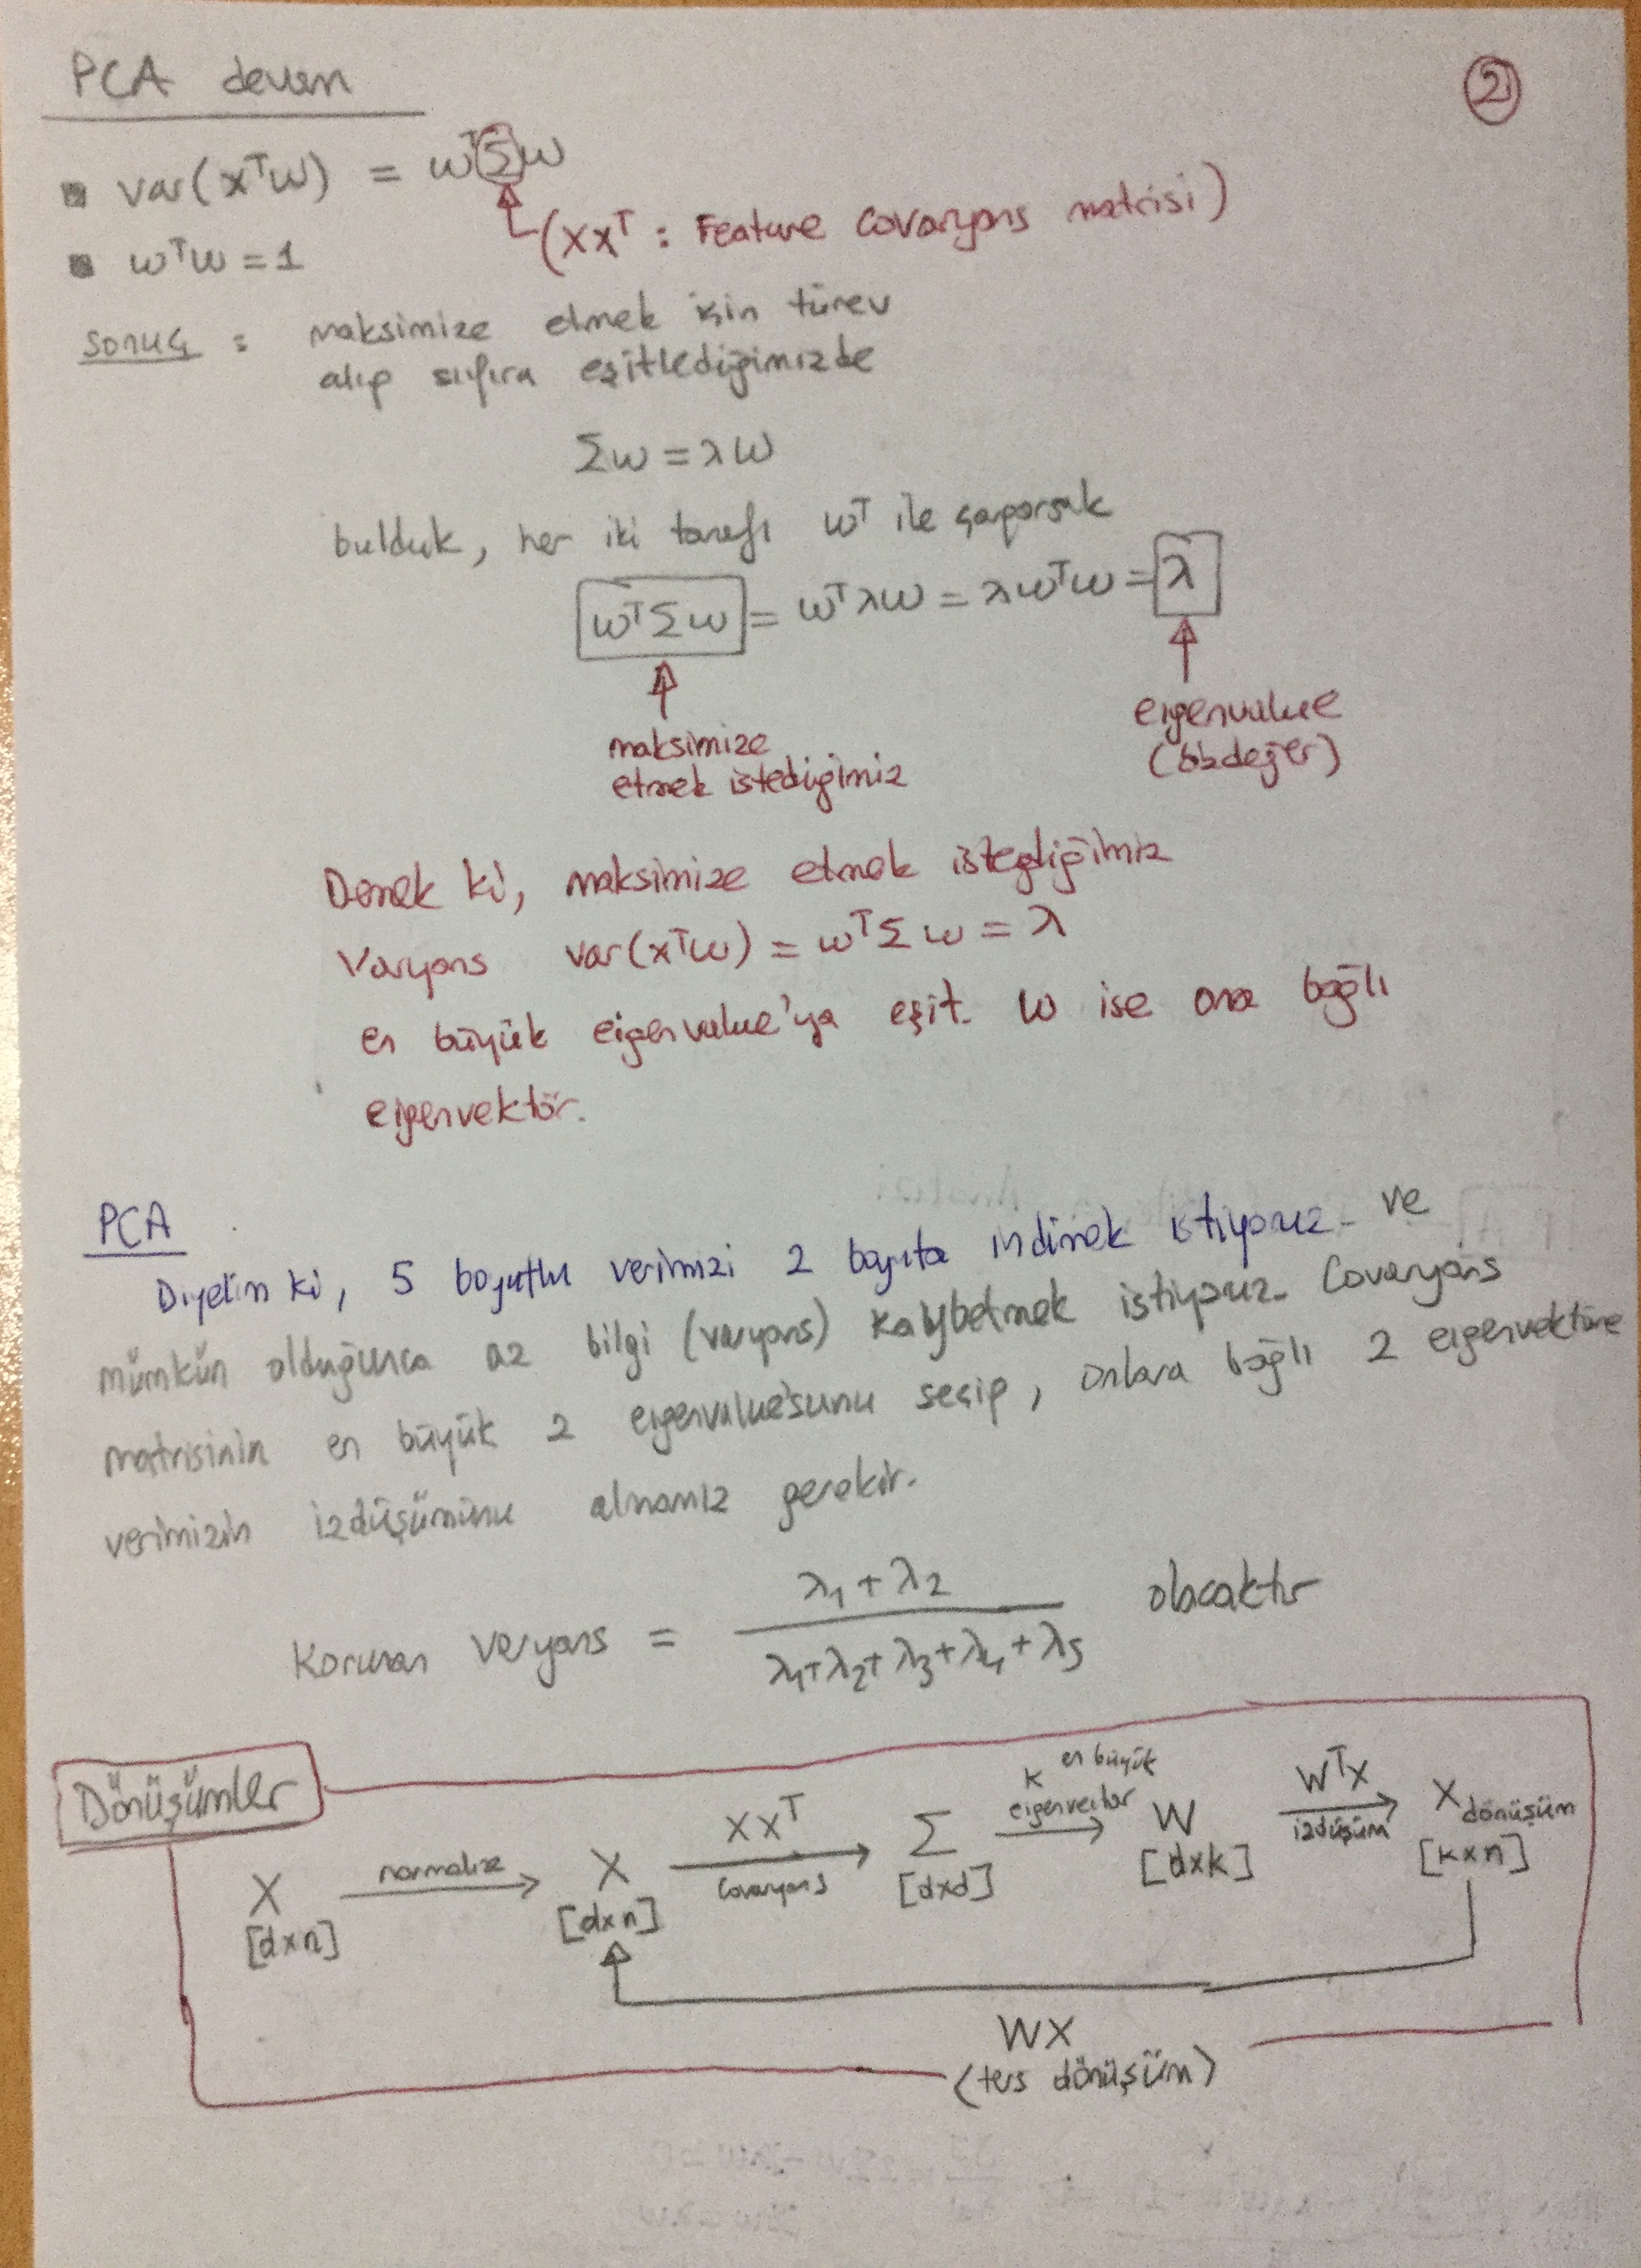 PCA devam
2
▪ var(xᵀw) = wᵀΣw
(XXᵀ : Feature Covaryans matrisi)
▪ wᵀw = 1
Sonuç : maksimize etmek için türev
alıp sıfıra eşitlediğimizde
Σw = λw
bulduk, her iki tarafı wᵀ ile çarparsak
wᵀΣw = wᵀλw = λwᵀw = λ
maksimize
etmek istediğimiz
eigenvalue
(özdeğer)
Demek ki, maksimize etmek istediğimiz
Varyans var(xᵀw) = wᵀΣw = λ
en büyük eigenvalue'ya eşit. w ise ona bağlı
eigenvektör.
PCA
Diyelim ki, 5 boyutlu verimizi 2 boyuta indirmek istiyoruz. ve
mümkün olduğunca az bilgi (varyans) kaybetmek istiyoruz. Covaryans
matrisinin en büyük 2 eigenvalue'sunu seçip, onlara bağlı 2 eigenvektöre
verimizin izdüşümünü almamız gerekir.
Korunan Varyans = λ1+λ2 / λ1+λ2+λ3+λ4+λ5 olacaktır
Dönüşümler
X [dxn] normalize → X [dxn] XXᵀ covaryans → Σ [dxd] k en büyük eigenvector → W [dxk] WᵀX izdüşüm → X dönüşüm [kxn]
WX
(ters dönüşüm)